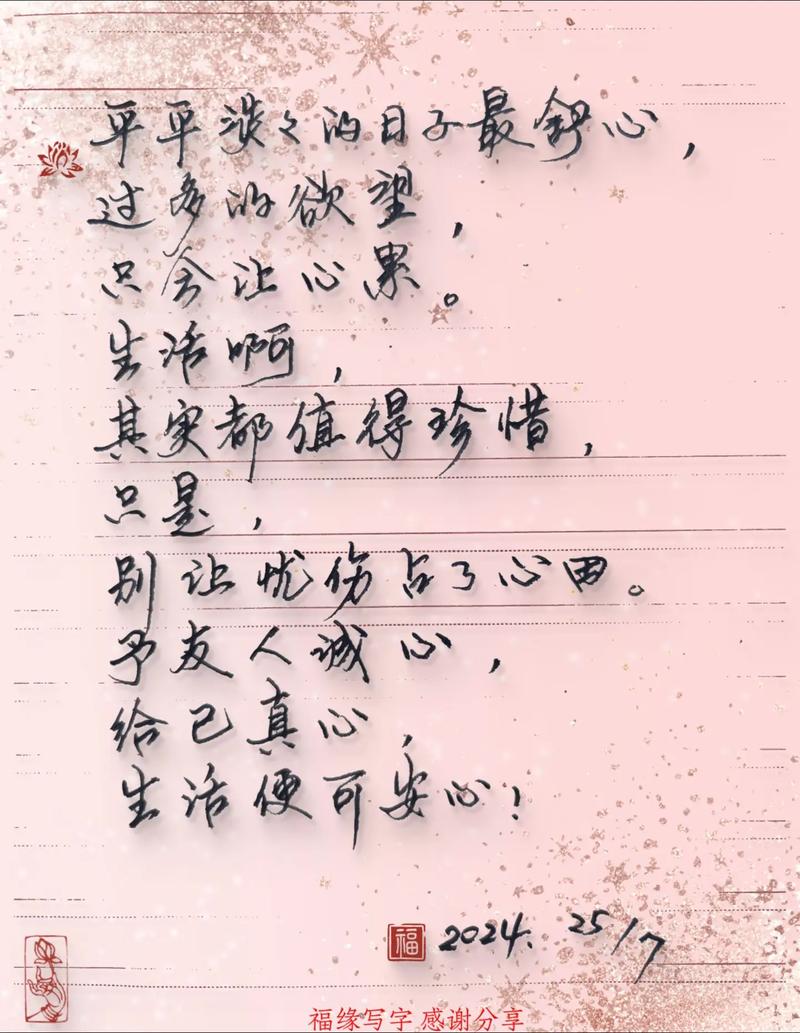 平平淡々的日子最舒心，
过多的欲望，
只会让心累。
生活啊，
其实都值得珍惜，
只是，
别让忧伤占了心田。
予友人诚心，
给己真心，
生活便可安心！
福 2024. 25/7
福缘写字 感谢分享